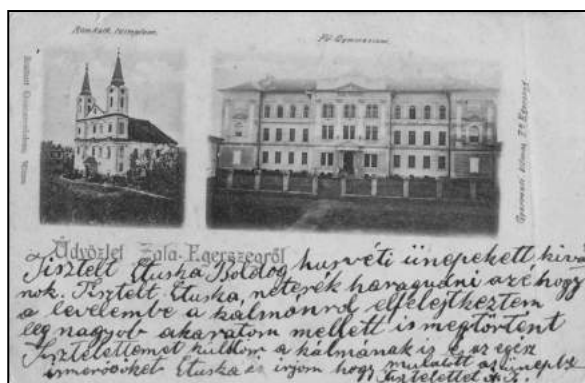 Róm.kath. templom.
Fő Gymnasium
Üdvözlet Zala-Egerszegről
Tisztelt Etuska Boldog husvéti ünepekett kivá
nok. Tisztelt Etuska, neterék haragudni azé hogy
a levelembe a kálmánról elfelejtkeztem
leg nagyob akaratom mellett is megtörtent
Tisztelettemet küldöm a kálmának is és az egész
ismerősöket Etuska és irjom hogy mulatott az ünepbe
Tisztelettel